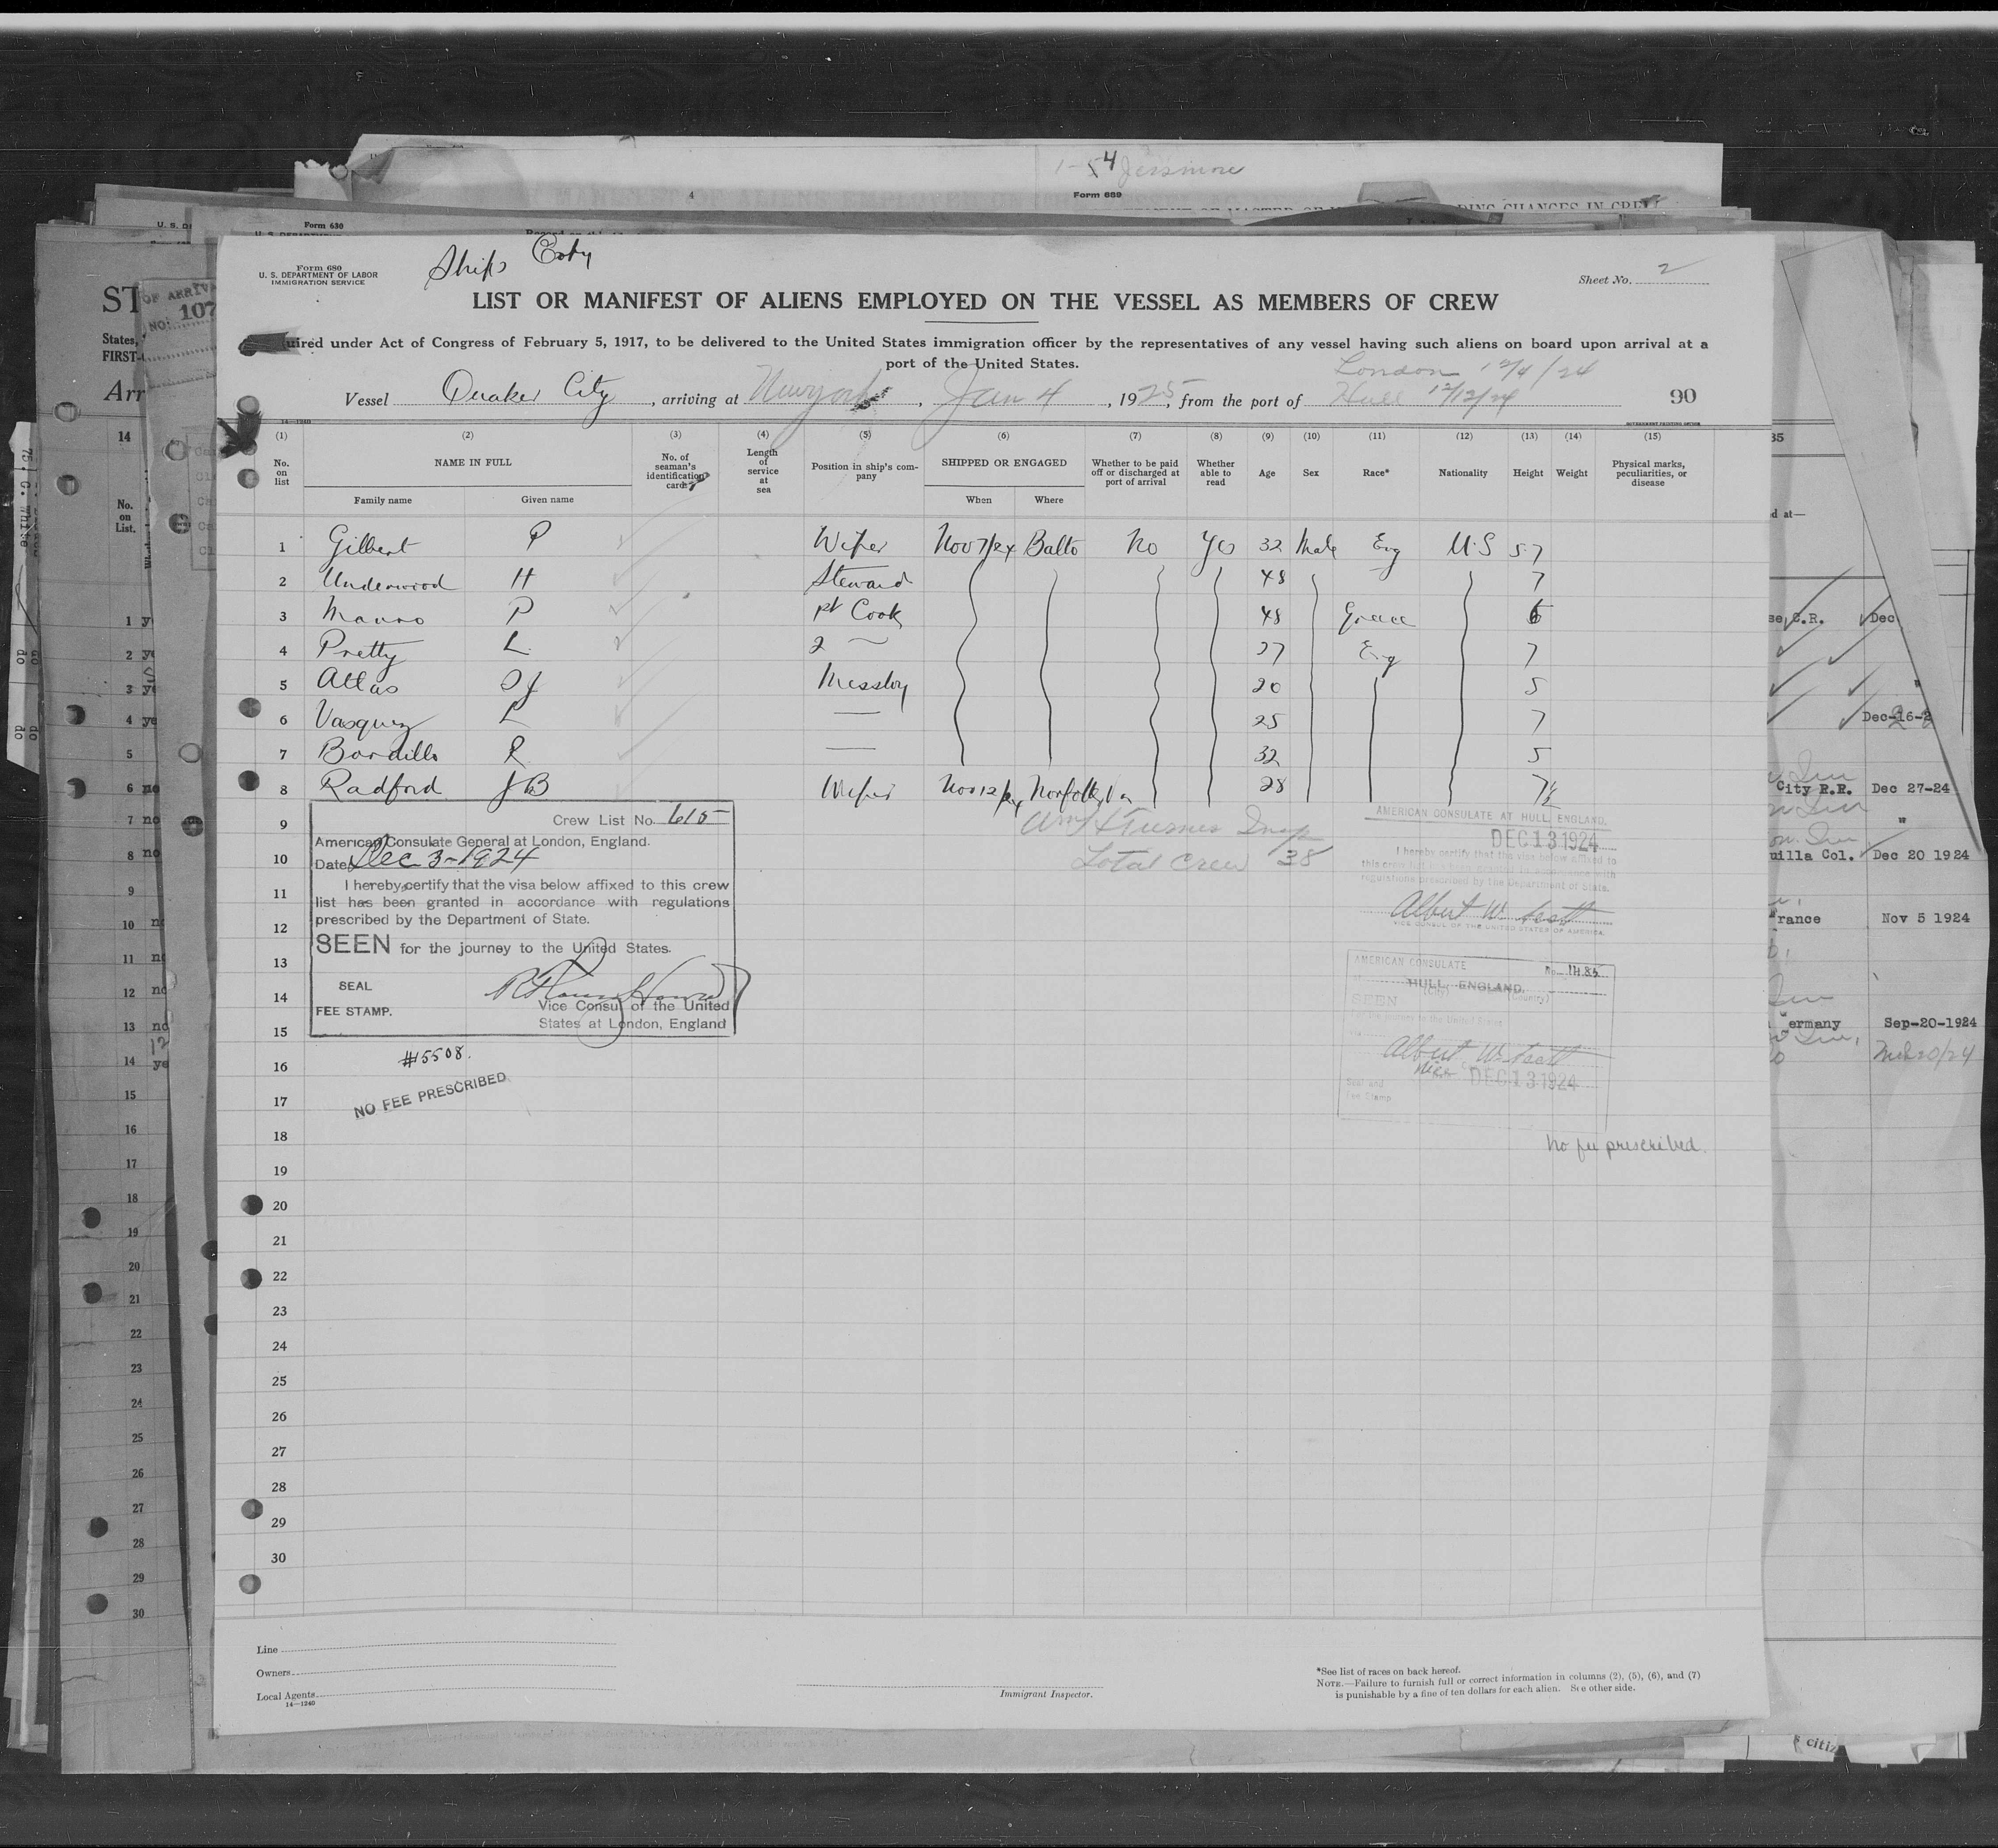 1-4 Jessmore
4
Form 689
U. S. DE
Form 630
DING CHANGES IN CREW
Ships Coby
Form 680
U. S. DEPARTMENT OF LABOR
IMMIGRATION SERVICE
Sheet No. 2
LIST OR MANIFEST OF ALIENS EMPLOYED ON THE VESSEL AS MEMBERS OF CREW
uired under Act of Congress of February 5, 1917, to be delivered to the United States immigration officer by the representatives of any vessel having such aliens on board upon arrival at a
port of the United States.
London 12/4/24
Vessel Quaker City, arriving at New York, Jan 4, 1925, from the port of Hull 12/12/24 90
14—1240
(1) (2) (3) (4) (5) (6) (7) (8) (9) (10) (11) (12) (13) (14) (15)
No. on list NAME IN FULL No. of seaman's identification card Length of service at sea Position in ship's company SHIPPED OR ENGAGED Whether to be paid off or discharged at port of arrival Whether able to read Age Sex Race* Nationality Height Weight Physical marks, peculiarities, or disease
Family name Given name When Where
1 Gilbert P Wiper Nov 7/24 Balto No Yes 32 Male Eng U.S 5 7
2 Underwood H Steward 48 7
3 Mauro P Cook 48 Greece 6
4 Pretty L 2 27 Eng 7
5 Allas Messboy 20 5
6 Vasquez L — 25 7
7 Bordillo R — 32 5
8 Radford J B Wiper Nov 12/24 Norfolk, Va 28 7½
9
10
11
12
13
14
15
16
17
18
19
20
21
22
23
24
25
26
27
28
29
30
Crew List No. 615
American Consulate General at London, England.
Date Dec 3-1924
I hereby certify that the visa below affixed to this crew
list has been granted in accordance with regulations
prescribed by the Department of State.
SEEN for the journey to the United States.
SEAL
FEE STAMP.
Vice Consul of the United
States at London, England
#15508.
NO FEE PRESCRIBED
Insp
Total Crew 38
AMERICAN CONSULATE AT HULL, ENGLAND.
DEC 13 1924
I hereby certify that the visa below affixed to
this crew list has been granted in accordance with
regulations prescribed by the Department of State.
Albert W. Scott
VICE CONSUL OF THE UNITED STATES OF AMERICA.
AMERICAN CONSULATE No. 1485
HULL, ENGLAND.
(City) (Country)
SEEN
For the journey to the United States
Albert W. Scott
Vice Consul DEC 13 1924
Seal and
Fee Stamp
No fee prescribed.
Line
Owners
Local Agents
14—1240
Immigrant Inspector.
*See list of races on back hereof.
NOTE.—Failure to furnish full or correct information in columns (2), (5), (6), and (7)
is punishable by a fine of ten dollars for each alien. See other side.
ST
OF ARRIVA
NO: 107
States,
FIRST-
Arr
14
No.
on
List.
1 ye
2 ye
3 ye
4 ye
5
6 no
7 no
8 no
9
10 no
11 no
12 no
13 no
14 ye
15
16
17
18
19
20
21
22
23
24
25
26
27
28
29
30
35
d at—
se, C.R. Dec
Dec-16-2
City R.R. Dec 27-24
uilla Col. Dec 20 1924
France Nov 5 1924
ermany Sep-20-1924
citiz